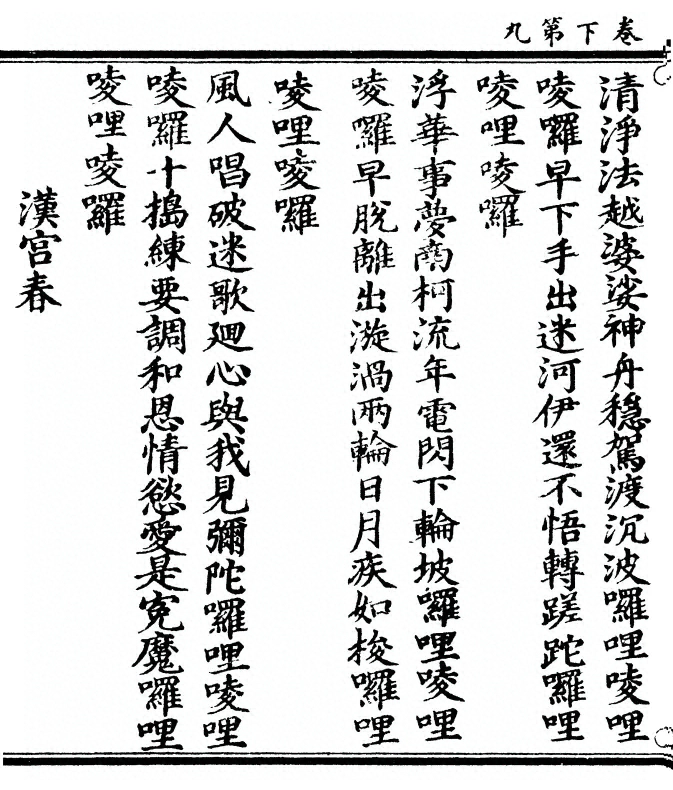 卷下第九
清淨法越婆娑神舟穩駕渡沉波囉哩唛哩
唛囉早下手出迷河伊還不悟轉蹉跎囉哩
唛哩唛囉
浮華事夢南柯流年電閃下輪坡囉哩唛哩
唛囉早脫離出漩渦兩輪日月疾如梭囉哩
唛哩唛囉
風人唱破迷歌廻心與我見彌陀囉哩唛哩
唛囉十搗練要調和恩情慾愛是寃魔囉哩
唛哩唛囉
漢宮春